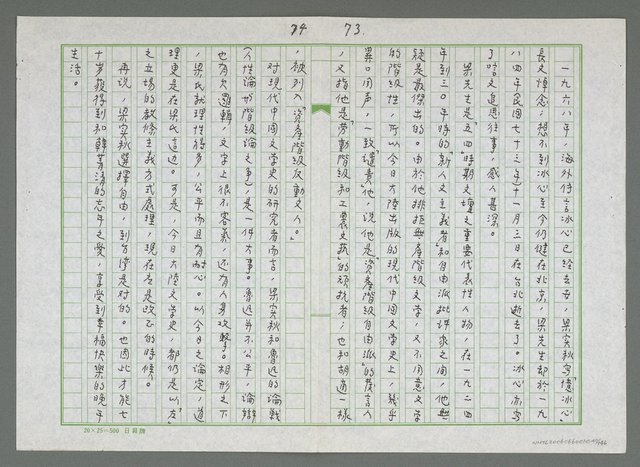 74
73
一九六八年，海外传言冰心已经去世，梁实秋写「憶冰心」
長文悼念，想不到冰心至今仍健在北京，梁先生却於一九
八四年（民國七十三年）十一月三日在台北逝去了。冰心亦寫
了咗文追思往事，感人甚深。
梁先生是五四時期文壇之重要代表性人物，在一九二四
年到三〇年時的「新人文主義者」和自由派批評家之間，他無
疑是最傑出的。由於他排拒無產階級文学，又不同意文学
的階級性，所以今日大陸出版的現代中国文学史上，幾乎
異口同声，一致譴責他，说他是「資產階級自由派」的發言人
，又指他是「勞動階級和工農文藝」的頑抗者；也和胡適一樣
，被列入「資產階級反動文人。」
对現代中国文学史的研究者而言，梁实秋和魯迅的論戰
（人性論与階級論之争），是一件大事。魯迅并不公平，論辯
也有欠邏輯，文字上很不客氣，还有人身攻擊。相形之下
，梁氏就理性得多，公平而且有耐心。以今日之論定，道
理更是在梁氏這边。可是，今日大陸文学史，都仍是以「左」
之立場的教條主義方式處理，現在应是改正的時候。
再说，梁实秋選擇自由，到台湾是对的。也因此才能七
十岁獲得到和韓菁清的忘年之愛，享受到幸福快樂的晚年
生活。
20×25＝500 日昇牌